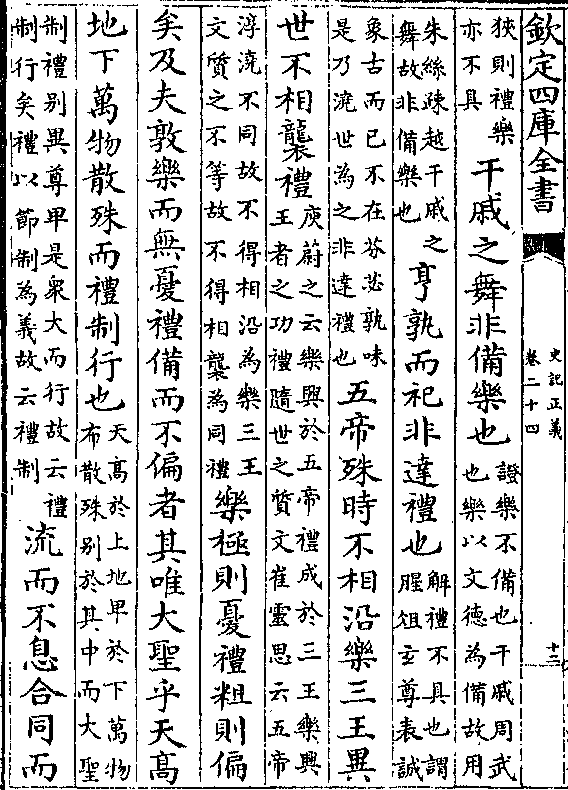 欽定四庫全書 史記正義 卷二十四 十二
狹則禮樂亦不具干戚之舞非備樂也證樂不備也干戚周武也樂以文德為備故用
朱絲疎越干戚之舞故非備樂也亨孰而祀非達禮也解禮不具也謂腥俎玄尊表誠
象古而已不在芬苾孰味是乃澆世為之非達禮也五帝殊時不相沿樂三王異
世不相襲禮庾蔚之云樂興於五帝禮成於三王樂興王者之功禮隨世之質文崔靈思云五帝
淳澆不同故不得相沿為樂三王文質之不等故不得相襲為同禮樂極則憂禮粗則偏
矣及夫敦樂而無憂禮備而不偏者其唯大聖乎天髙
地下萬物散殊而禮制行也天髙於上地卑於下萬物布散殊别於其中而大聖
制禮别異尊卑是衆大而行故云禮制行矣禮以節制為義故云禮制流而不息合同而